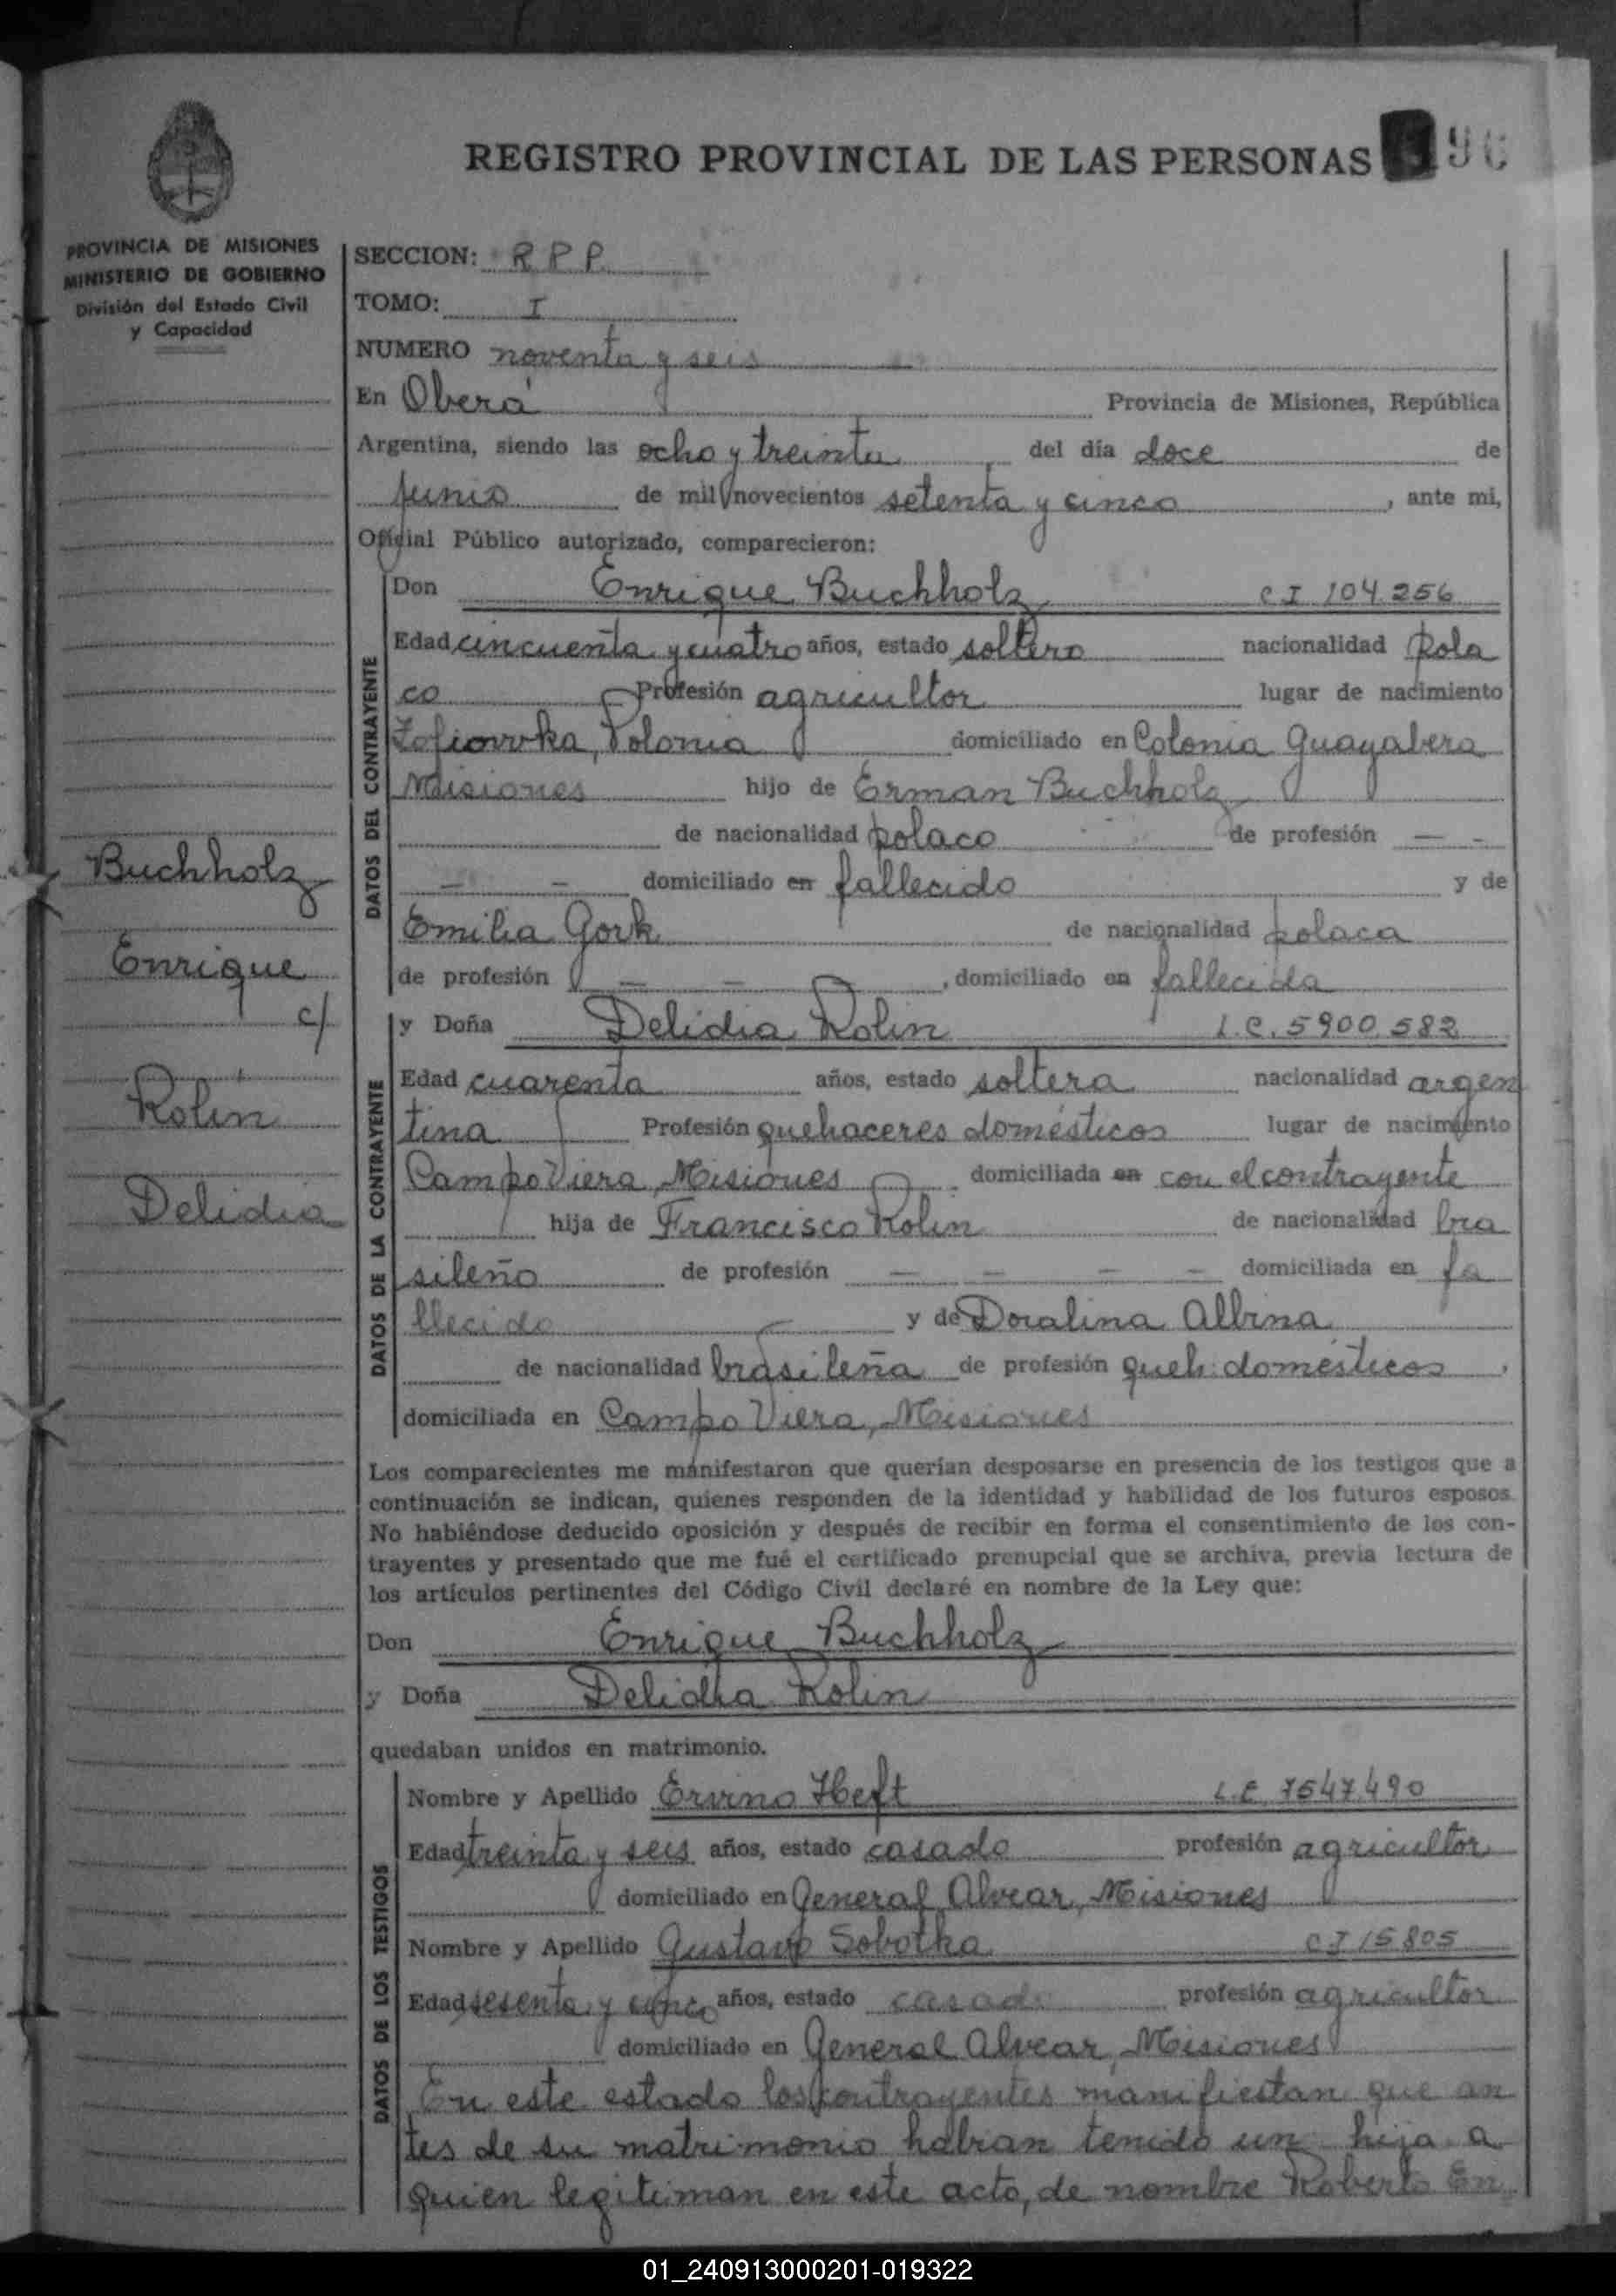 REGISTRO PROVINCIAL DE LAS PERSONAS 96
PROVINCIA DE MISIONES
MINISTERIO DE GOBIERNO
División del Estado Civil
y Capacidad
SECCION: R P P
TOMO: I
NUMERO noventa y seis
En Oberá Provincia de Misiones, República
Argentina, siendo las ocho y treinta del día doce de
junio de mil novecientos setenta y cinco, ante mi,
Oficial Público autorizado, comparecieron:
DATOS DEL CONTRAYENTE
Don Enrique Buchholz C I 104.256
Edad cincuenta y cuatro años, estado soltero nacionalidad pola
co Profesión agricultor lugar de nacimiento
Zofiowka, Polonia domiciliado en Colonia Guayabera
Misiones hijo de Erman Buchholz
de nacionalidad polaco de profesión — -
— — domiciliado en fallecido y de
Emilia Gork de nacionalidad polaca
de profesión — —, domiciliado en fallecida
Buchholz
Enrique
c/
Rolin
Delidia
DATOS DE LA CONTRAYENTE
y Doña Delidia Rolin L.C. 5900.582
Edad cuarenta años, estado soltera nacionalidad argen
tina Profesión quehaceres domésticos lugar de nacimiento
Campo Viera, Misiones domiciliada en con el contrayente
hija de Francisco Rolin de nacionalidad bra
sileño de profesión — — — — domiciliada en fa
llecido y de Doralina Albina
de nacionalidad brasileña de profesión queh. domésticos,
domiciliada en Campo Viera, Misiones
Los comparecientes me manifestaron que querían desposarse en presencia de los testigos que a
continuación se indican, quienes responden de la identidad y habilidad de los futuros esposos.
No habiéndose deducido oposición y después de recibir en forma el consentimiento de los con-
trayentes y presentado que me fué el certificado prenupcial que se archiva, previa lectura de
los artículos pertinentes del Código Civil declaré en nombre de la Ley que:
Don Enrique Buchholz
y Doña Delidia Rolin
quedaban unidos en matrimonio.
DATOS DE LOS TESTIGOS
Nombre y Apellido Ervino Heft L.E. 7547.490
Edad treinta y seis años, estado casado profesión agricultor
domiciliado en General Alvear, Misiones
Nombre y Apellido Gustavo Sobotka C I 15.805
Edad sesenta y cinco años, estado casado profesión agricultor
domiciliado en General Alvear, Misiones
En este estado los contrayentes manifiestan que an
tes de su matrimonio habían tenido un hijo a
quien legitiman en este acto, de nombre Roberto En
01_240913000201-019322